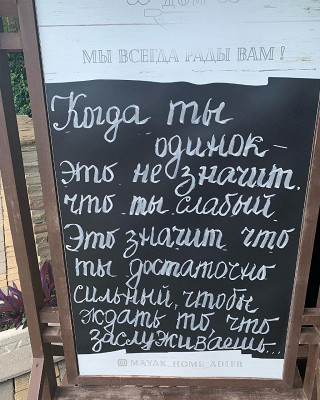 ДОМ
МЫ ВСЕГДА РАДЫ ВАМ!
Когда ты
одинок -
это не значит,
что ты слабый.
Это значит что
ты достаточно
сильный, чтобы
ждать то, что
заслуживаешь...
MAYAK_HOME_ADLER